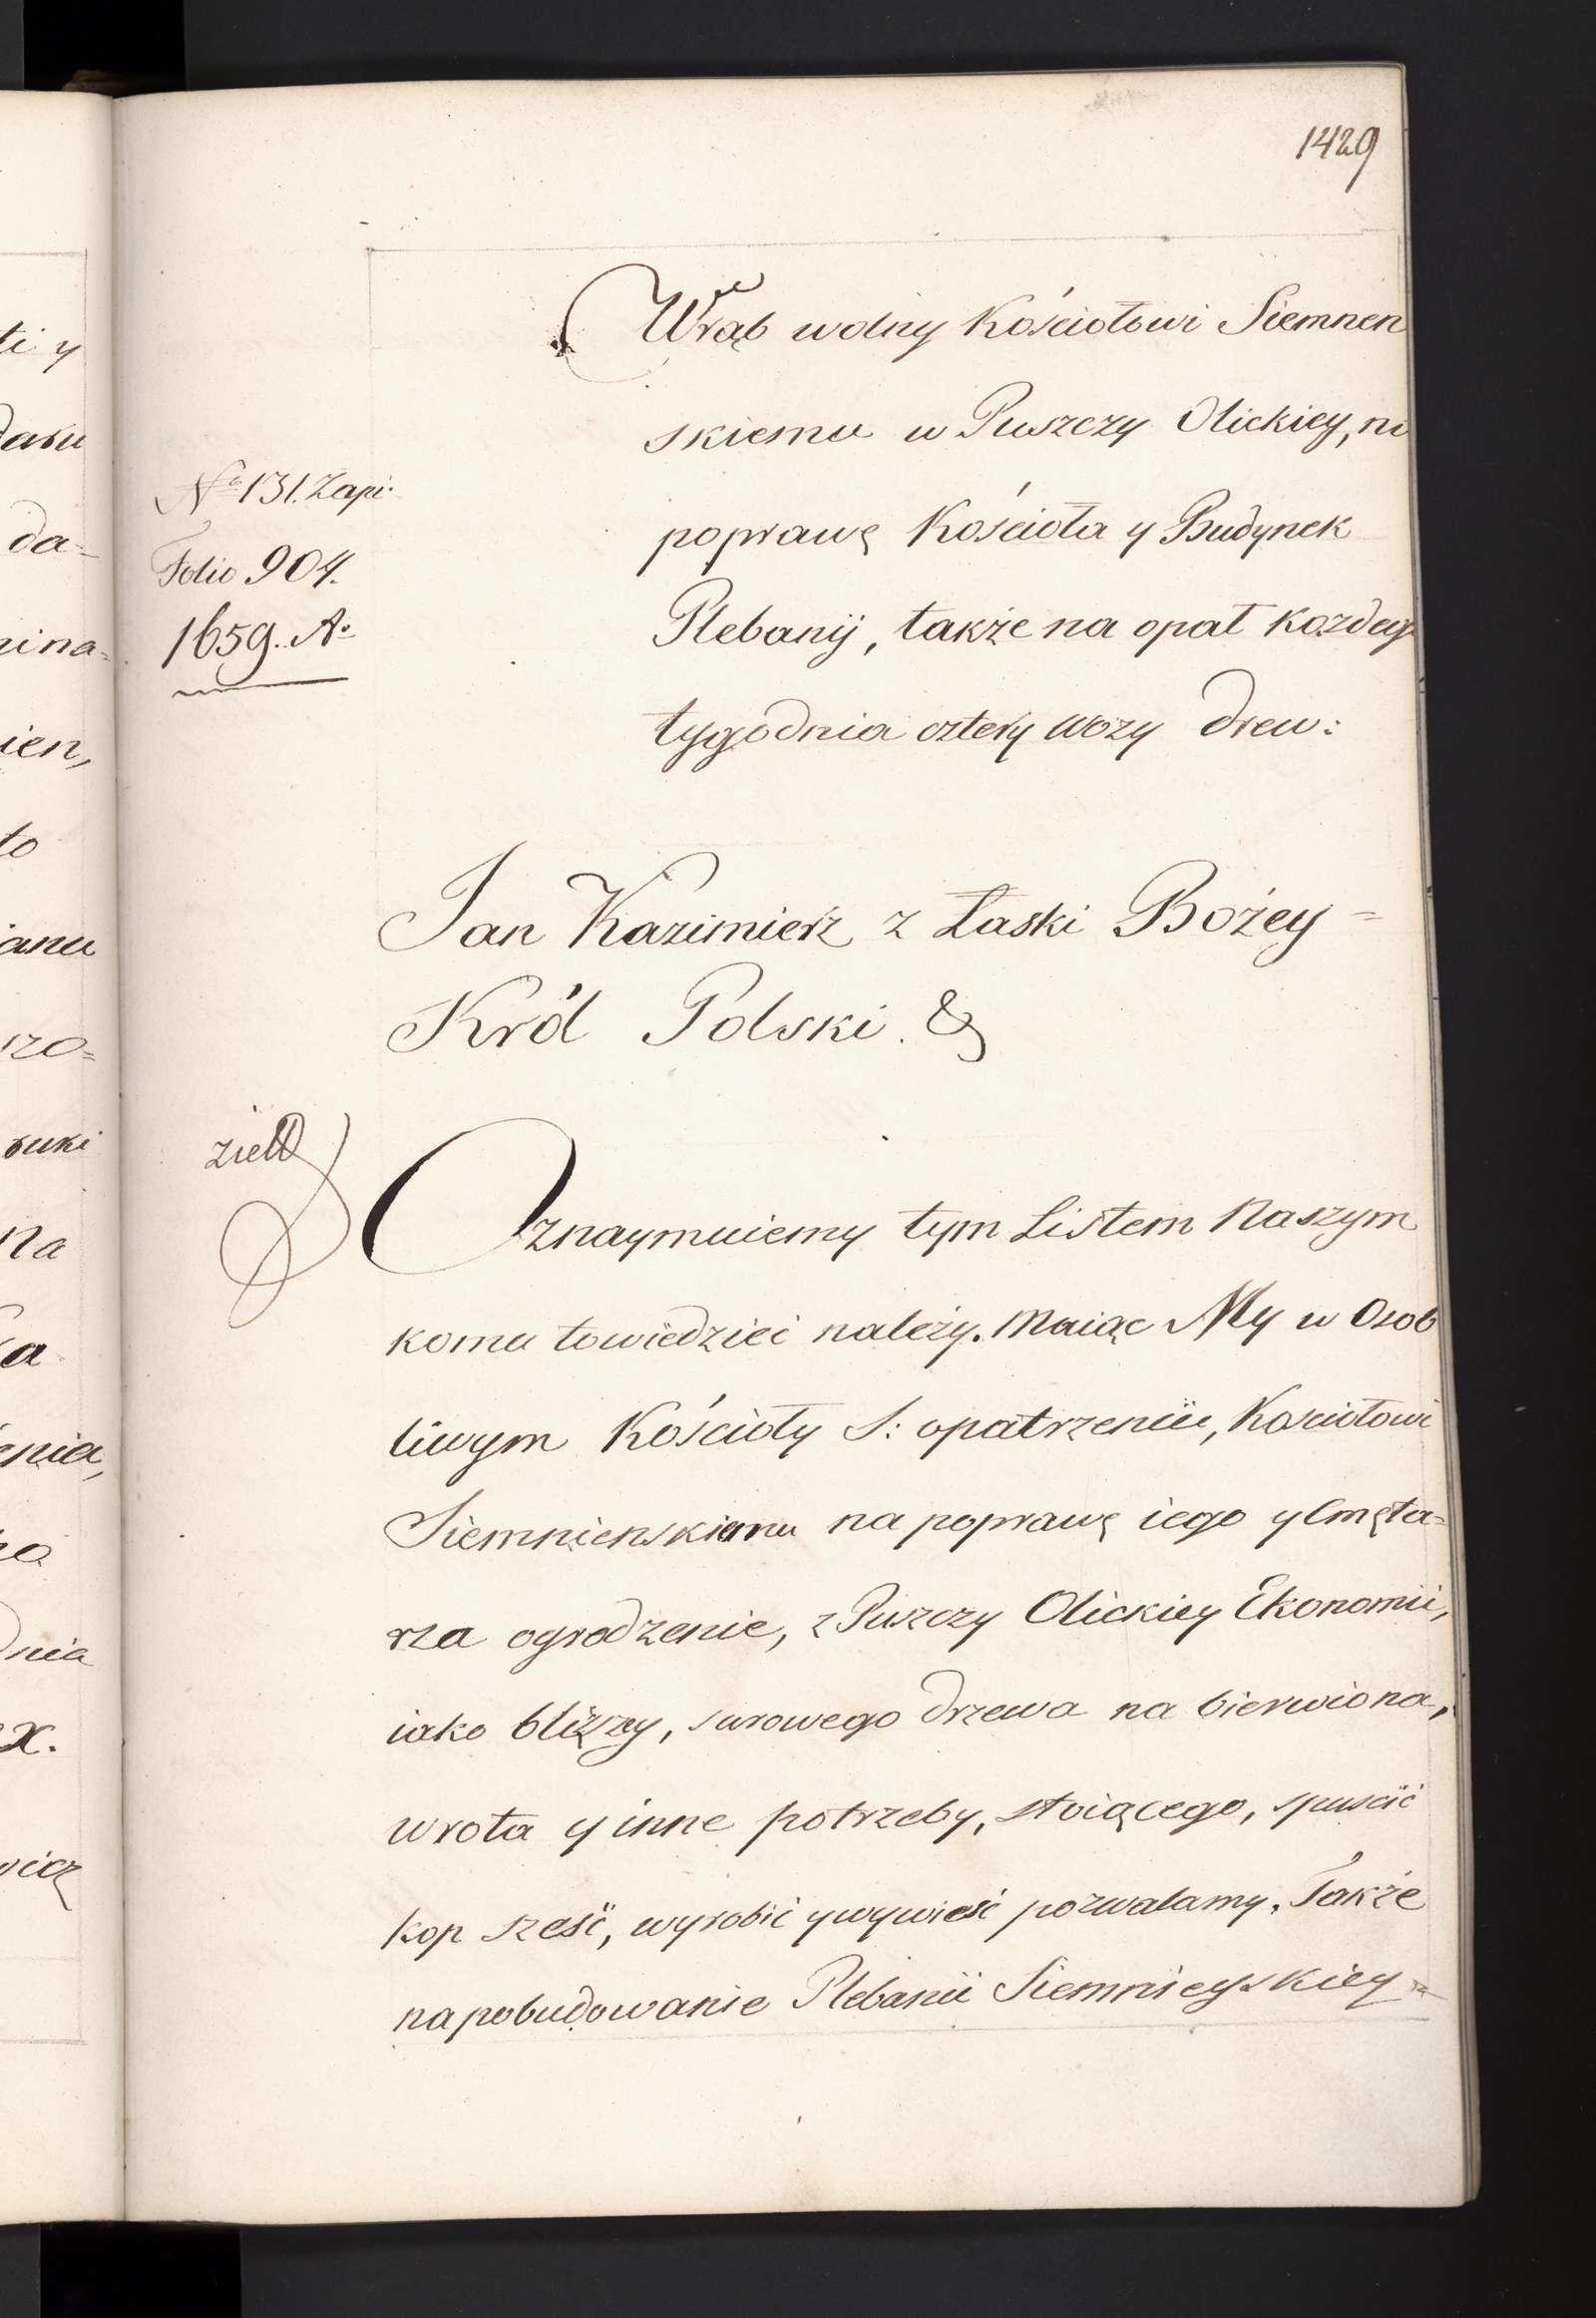 1429
Wrąb wolny Kościołowi Siemnen
skiemu w Puszczy Olickiey, na
poprawę Kościoła y Budynek
Plebanij, także na opał kozdego
tygodnia cztery wozy drew:
Nº 131. Zapi:
Folio 904.
1659. Aº
Jan Kazimierz z Łaski Bożey =
Król Polski. &
Oznaymuiemy tym Listem Naszym
komu towiedzieć należy. Maiąc My w Osob
liwym Kościoły S: opatrzeniu, Kościołowi
Siemnienskiemu na poprawę iego y Cmęta=
rza ogrodzenie, z Puszczy Olickiey Ekonomii,
iako bliższy, surowego drzewa na bierwiona,
wrota y inne potrzeby, stoiącego, spuścić
kop sześć, wyrobić y wywieść pozwalamy. Także
na pobudowanie Plebanii Siemnieyskiey
ti y
daru
da=
nina=
ien,
to
ianu
szo=
ruki
na
ka
enia,
nia
x.
wicz